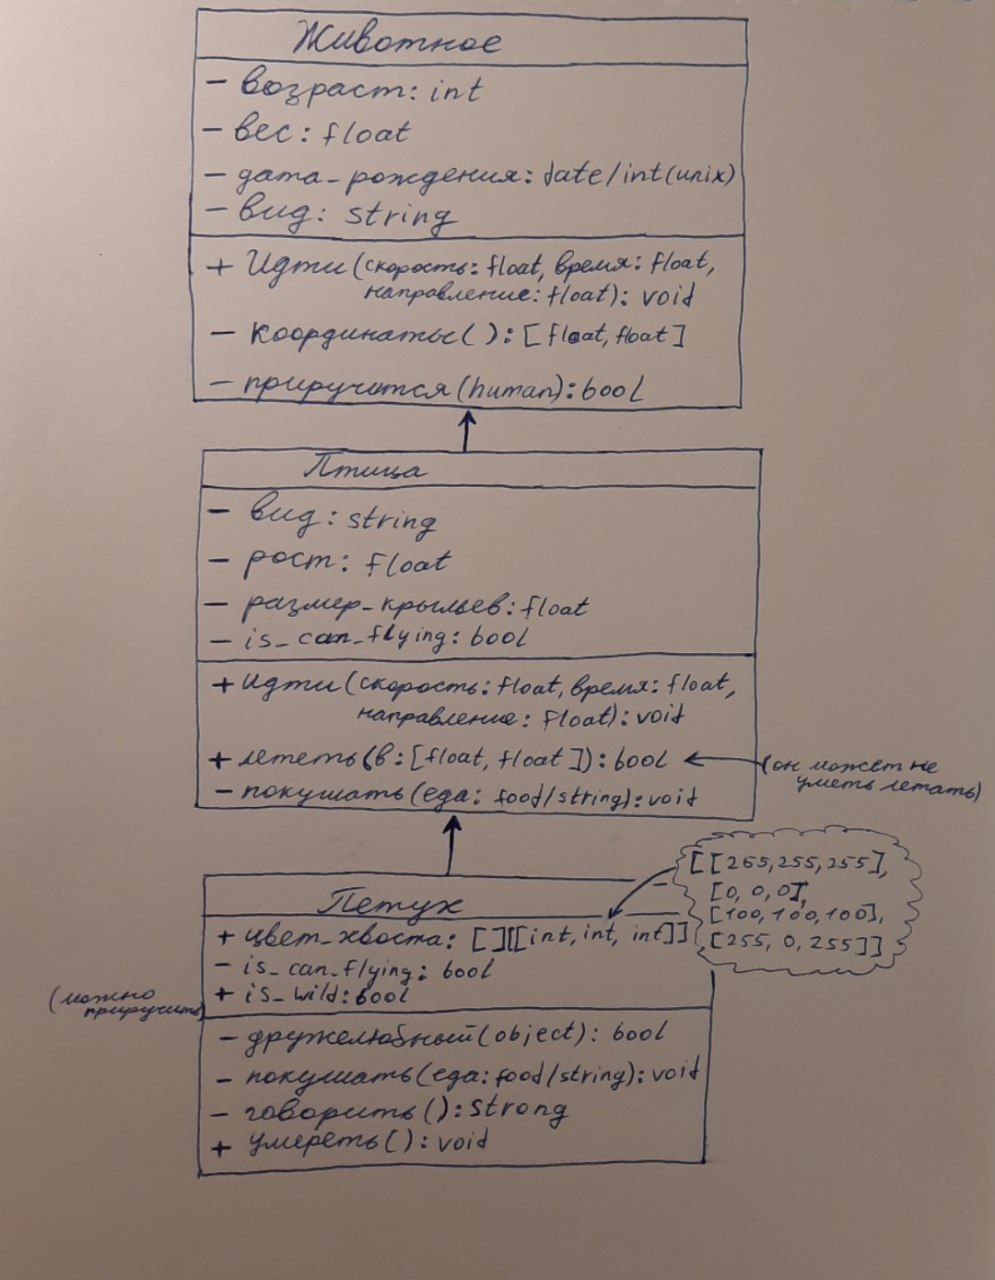 Животное
- возраст: int
- вес: float
- дата_рождения: date/int(unix)
- вид: string
+ Идти(скорость: float, время: float,
направление: float): void
- координаты(): [float, float]
- приручится(human): bool
Птица
- вид: string
- рост: float
- размер_крыльев: float
- is_can_flying: bool
+ идти(скорость: float, время: float,
направление: float): void
+ лететь(в: [float, float]): bool
(он может не
уметь летать)
- покушать(еда: food/string): void
Петух
+ цвет_хвоста: [][[int, int, int]]
[[265,255,255],
[0, 0, 0],
[100,100,100],
[255, 0, 255]]
- is_can_flying: bool
+ is_wild: bool
(можно
приручить)
- дружелюбный(object): bool
- покушать(еда: food/string): void
- говорить(): strong
+ умереть(): void